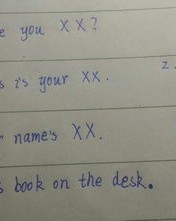 e you XX?
s is your XX.
2.
name's XX.
s book on the desk.